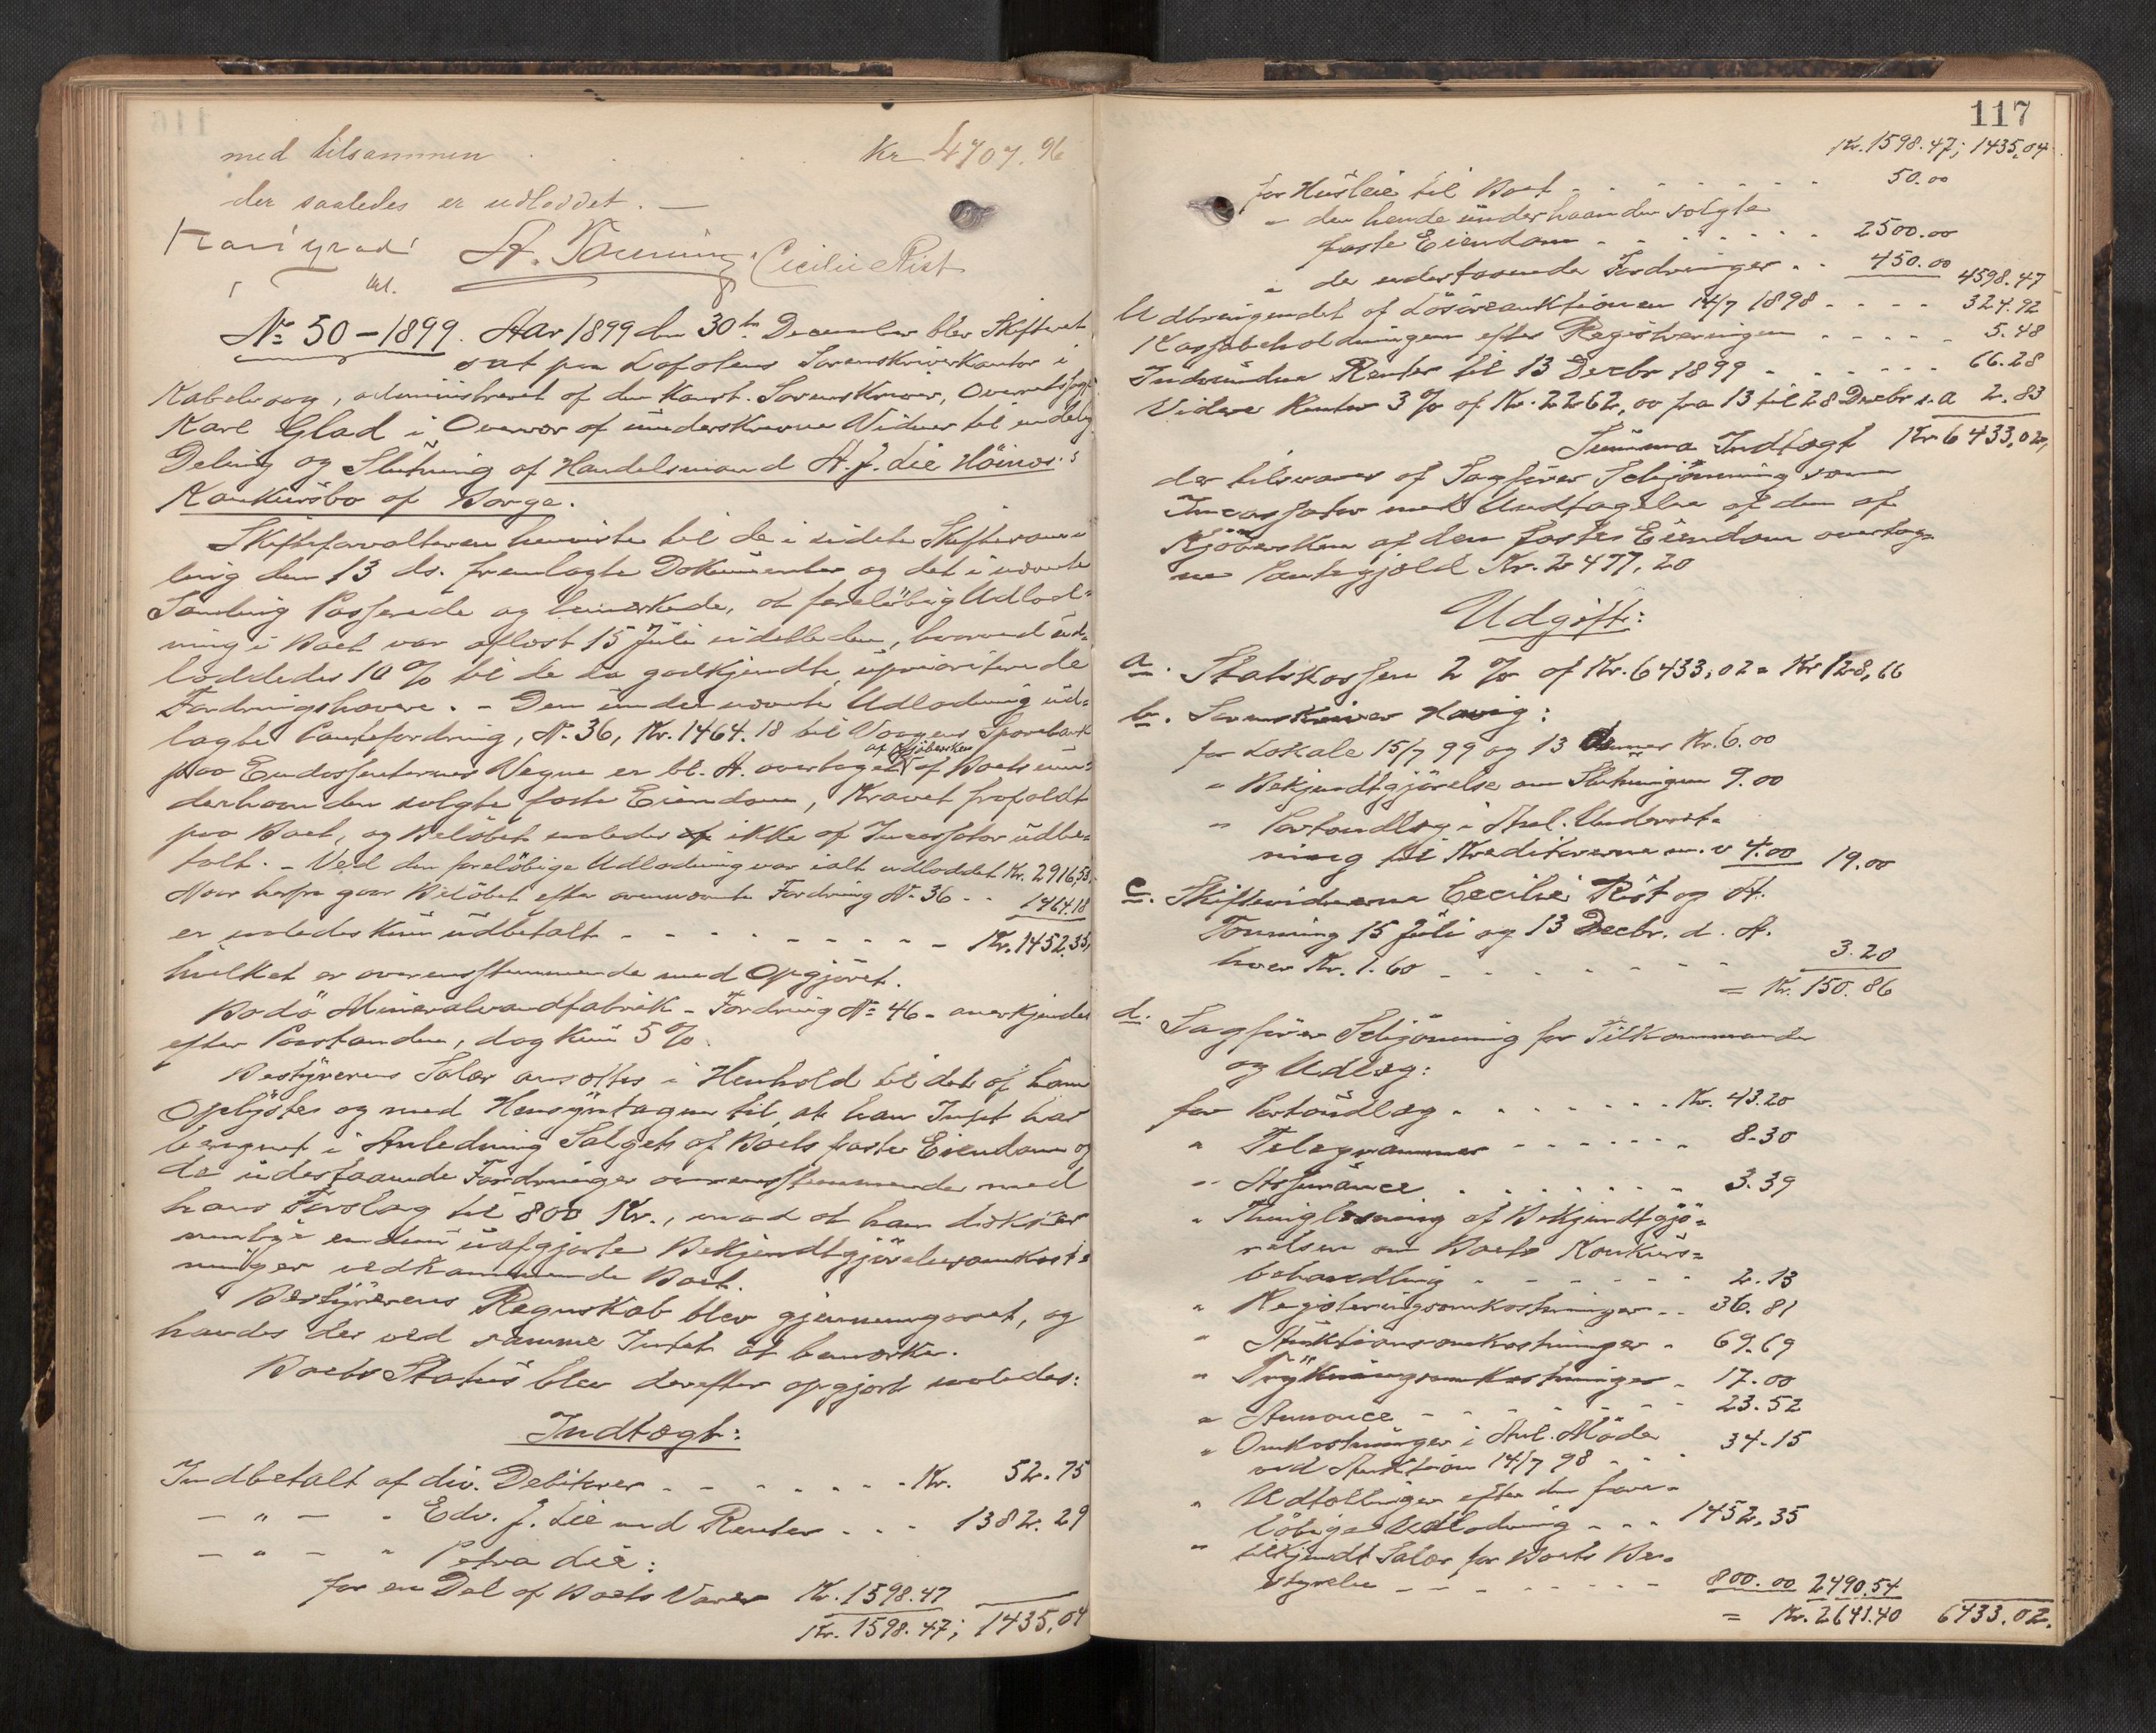 med tilsammen . . . Kr 4707.96
der saaledes er udloddet. —
Karl Glad A. Tønning Cecilie Rist
kst.
No 50 – 1899. Aar 1899 den 30te December blev Skifteret
sat paa Lofotens Sorenskriverkontor i
Kabelvaag, administreret af den konst. Sorenskriver, Overretssagf.
Karl Glad i Overvær af underskrevne Vidner til endelig
Deling og Slutning af Handelsmand A. J. Lie Höines's
Konkursbo af Borge.
Skifteforvalteren henviste til de i sidste Skiftesam-
ling den 13 ds. fremlagte Dokumenter og det i nævnte
Samling Passerede og bemærkede, at foreløbig Udlod-
ning i Boet var afløst 15 Juli sidstleden, hvorved ud-
loddedes 10 % til de da godkjendte, uprioriterede
Fordringshavere. – Den under nævnte Udlodning ud-
lagte Pantefordring, No. 36, Kr. 1464.18 til Vaagens Sparebank
af Kjøbersken
paa Endossenternes Vegne er bl. A. overtaget af Boets un-
derhaanden solgte faste Eiendom, Kravet frafaldt
paa Boet, og Beløbet saaledes ikke af Incassator udbe-
talt. – Ved den foreløbige Udlodning var ialt udloddet Kr. 2916,53.
Naar herfra gaar Beløbet efter ovennævnte Fordring No. 36 . . 1464.18
er saaledes kun udbetalt - - - - - - - - - Kr. 1452.35,
hvilket er overensstemmende med Opgjøret.
Bodö Mineralvandfabrik – Fordring No 46 – anerkjendes
efter Paastanden, dog kun 5 %.
Bestyrerens Salær ansattes i Henhold til det af ham
Oplyste og med Hensyntagen til, at han Intet har
beregnet i Anledning Salget af Boets faste Eiendom og
de udestaaende Fordringer overensstemmende med
hans Forslag til 800 Kr., mod at han dækker
mulige endnu uafgjorte Bekjendtgjørelsesomkost-
ninger vedkommende Boet.
Bestyrerens Regnskab blev gjennemgaaet, og
havdes der ved samme Intet at bemærke.
Boets Status blev derefter opgjort saaledes:
Indtægt:
Indbetalt af div. Debitorer - - - - - - - Kr. 52.75
— " — " Edv. J. Lie med Renter . . . 1382.29
— " — " Petra Lie:
for en Del af Boets Varer Kr. 1598.47
Kr. 1598.47; 1435,04
117
Kr. 1598.47; 1435,04
for Husleie til Boet - - - - - - - 50.00
" den hende underhaanden solgte
faste Eiendom - - - - - - - 2500.00
" de udestaaende Fordringer . . 450.00 4598.47
Udbringendet af Løsøreauktionen 14/7 1898 - - - - 324.92
Kassabeholdningen efter Registreringen - - - - - 5.48
Indvundne Renter til 13 Decbr 1899 - - - - - - 66.28
Videre Renter 3 % af Kr. 2262,00 fra 13 til 28 Decbr s. A 2.83
Summa Indtægt Kr 6433,02,
der tilsvares af Sagfører Schjönning som
Incassator med Undtagelse af den af
Kjöbersken af den faste Eiendom overtag-
ne Pantegjæld Kr. 2477,20
Udgift:
a. Statskassen 2 % af Kr. 6433,02 = Kr 128,66
b. Sorenskriver Havig:
for Lokale 15/7 99 og 13 dennes Kr. 6.00
" Bekjendtgjörelse om Slutningen 9.00
" Portoudlæg i Anl. Underret-
ning til Kreditorerne m. v 4.00 19.00
c. Skiftevidnerne Cecilie Rist og A.
Tønning 15 Juli og 13 Decbr. d. A.
hver Kr. 1.60 - - - - - - - 3.20
= Kr. 150.86
d. Sagförer Schjönning for Tilkommende
og Udlæg:
for Portoudlæg . . . . . . . Kr. 43.20
" Telegrammer - - - - - - - 8.30
" Assurance . . . . . . - 3.39
" Thinglæsning af Bekjendtgjö-
relsen om Boets Konkurs-
behandling - - - - - - 2.13
" Registeringsomkostninger . . 36.81
" Auktionsomkostninger . 69.69
" Trykningsomkostninger - 17.00
" Annonce - - - - - - - 23.52
" Omkostninger i Anl. Møde
ved Auktion 14/7 98 - . . 34.15
" Udtællinger efter den fore-
löbige Udlodning - - - 1452,35
" tilkjendt Salær for Boets Be-
styrelse - - - - - - 800.00 2490.54
= Kr. 2641.40 6433.02.